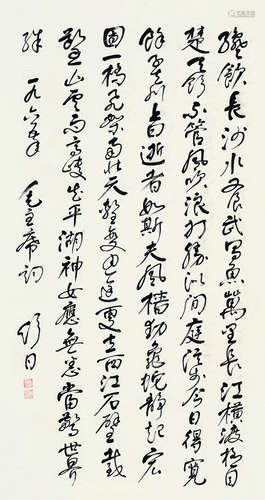 纔飲長沙水又食武昌魚萬里長江橫渡極目
楚天舒不管風吹浪打勝似閒庭信步今日得寬
餘子在川上曰逝者如斯夫風檣動龜蛇靜起宏
圖一橋飛架南北天塹變通途更立西江石壁截
斷巫山雲雨高峽出平湖神女應無恙當驚世界
殊 一九六年 毛主席詞